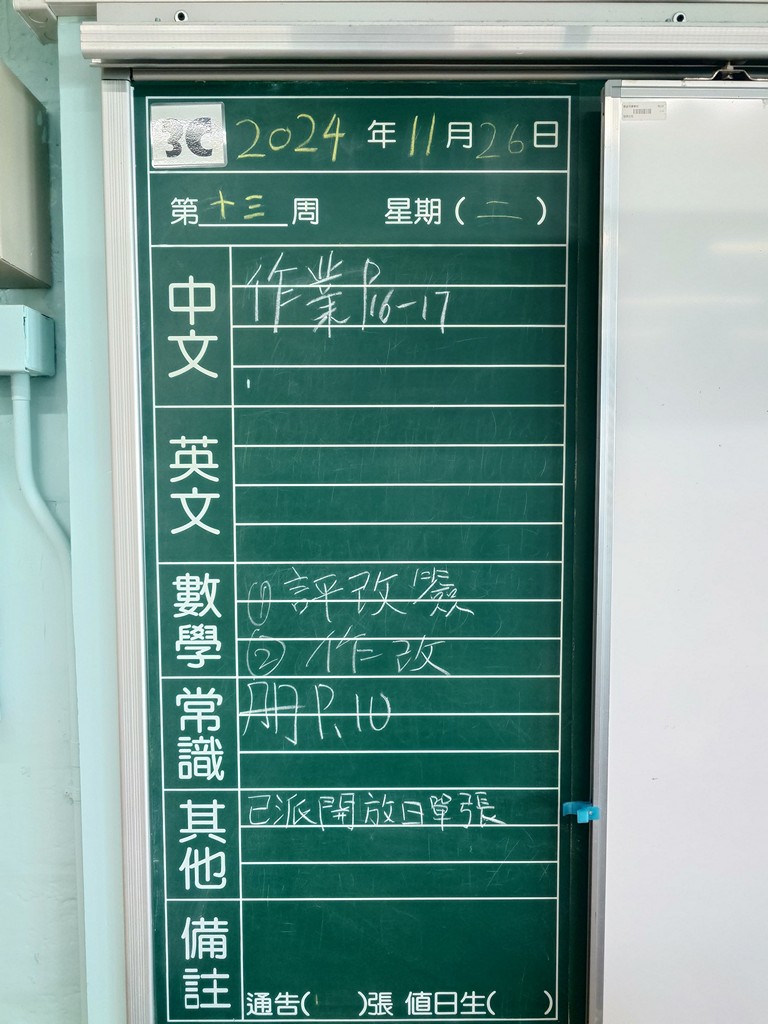 3C 2024年11月26日
第十三周 星期(二)
中文
作業P.16-17
英文
數學
①評改簽
②作改
常識
冊P.10
其他
已派開放日單張
備註
通告( )張 值日生( )